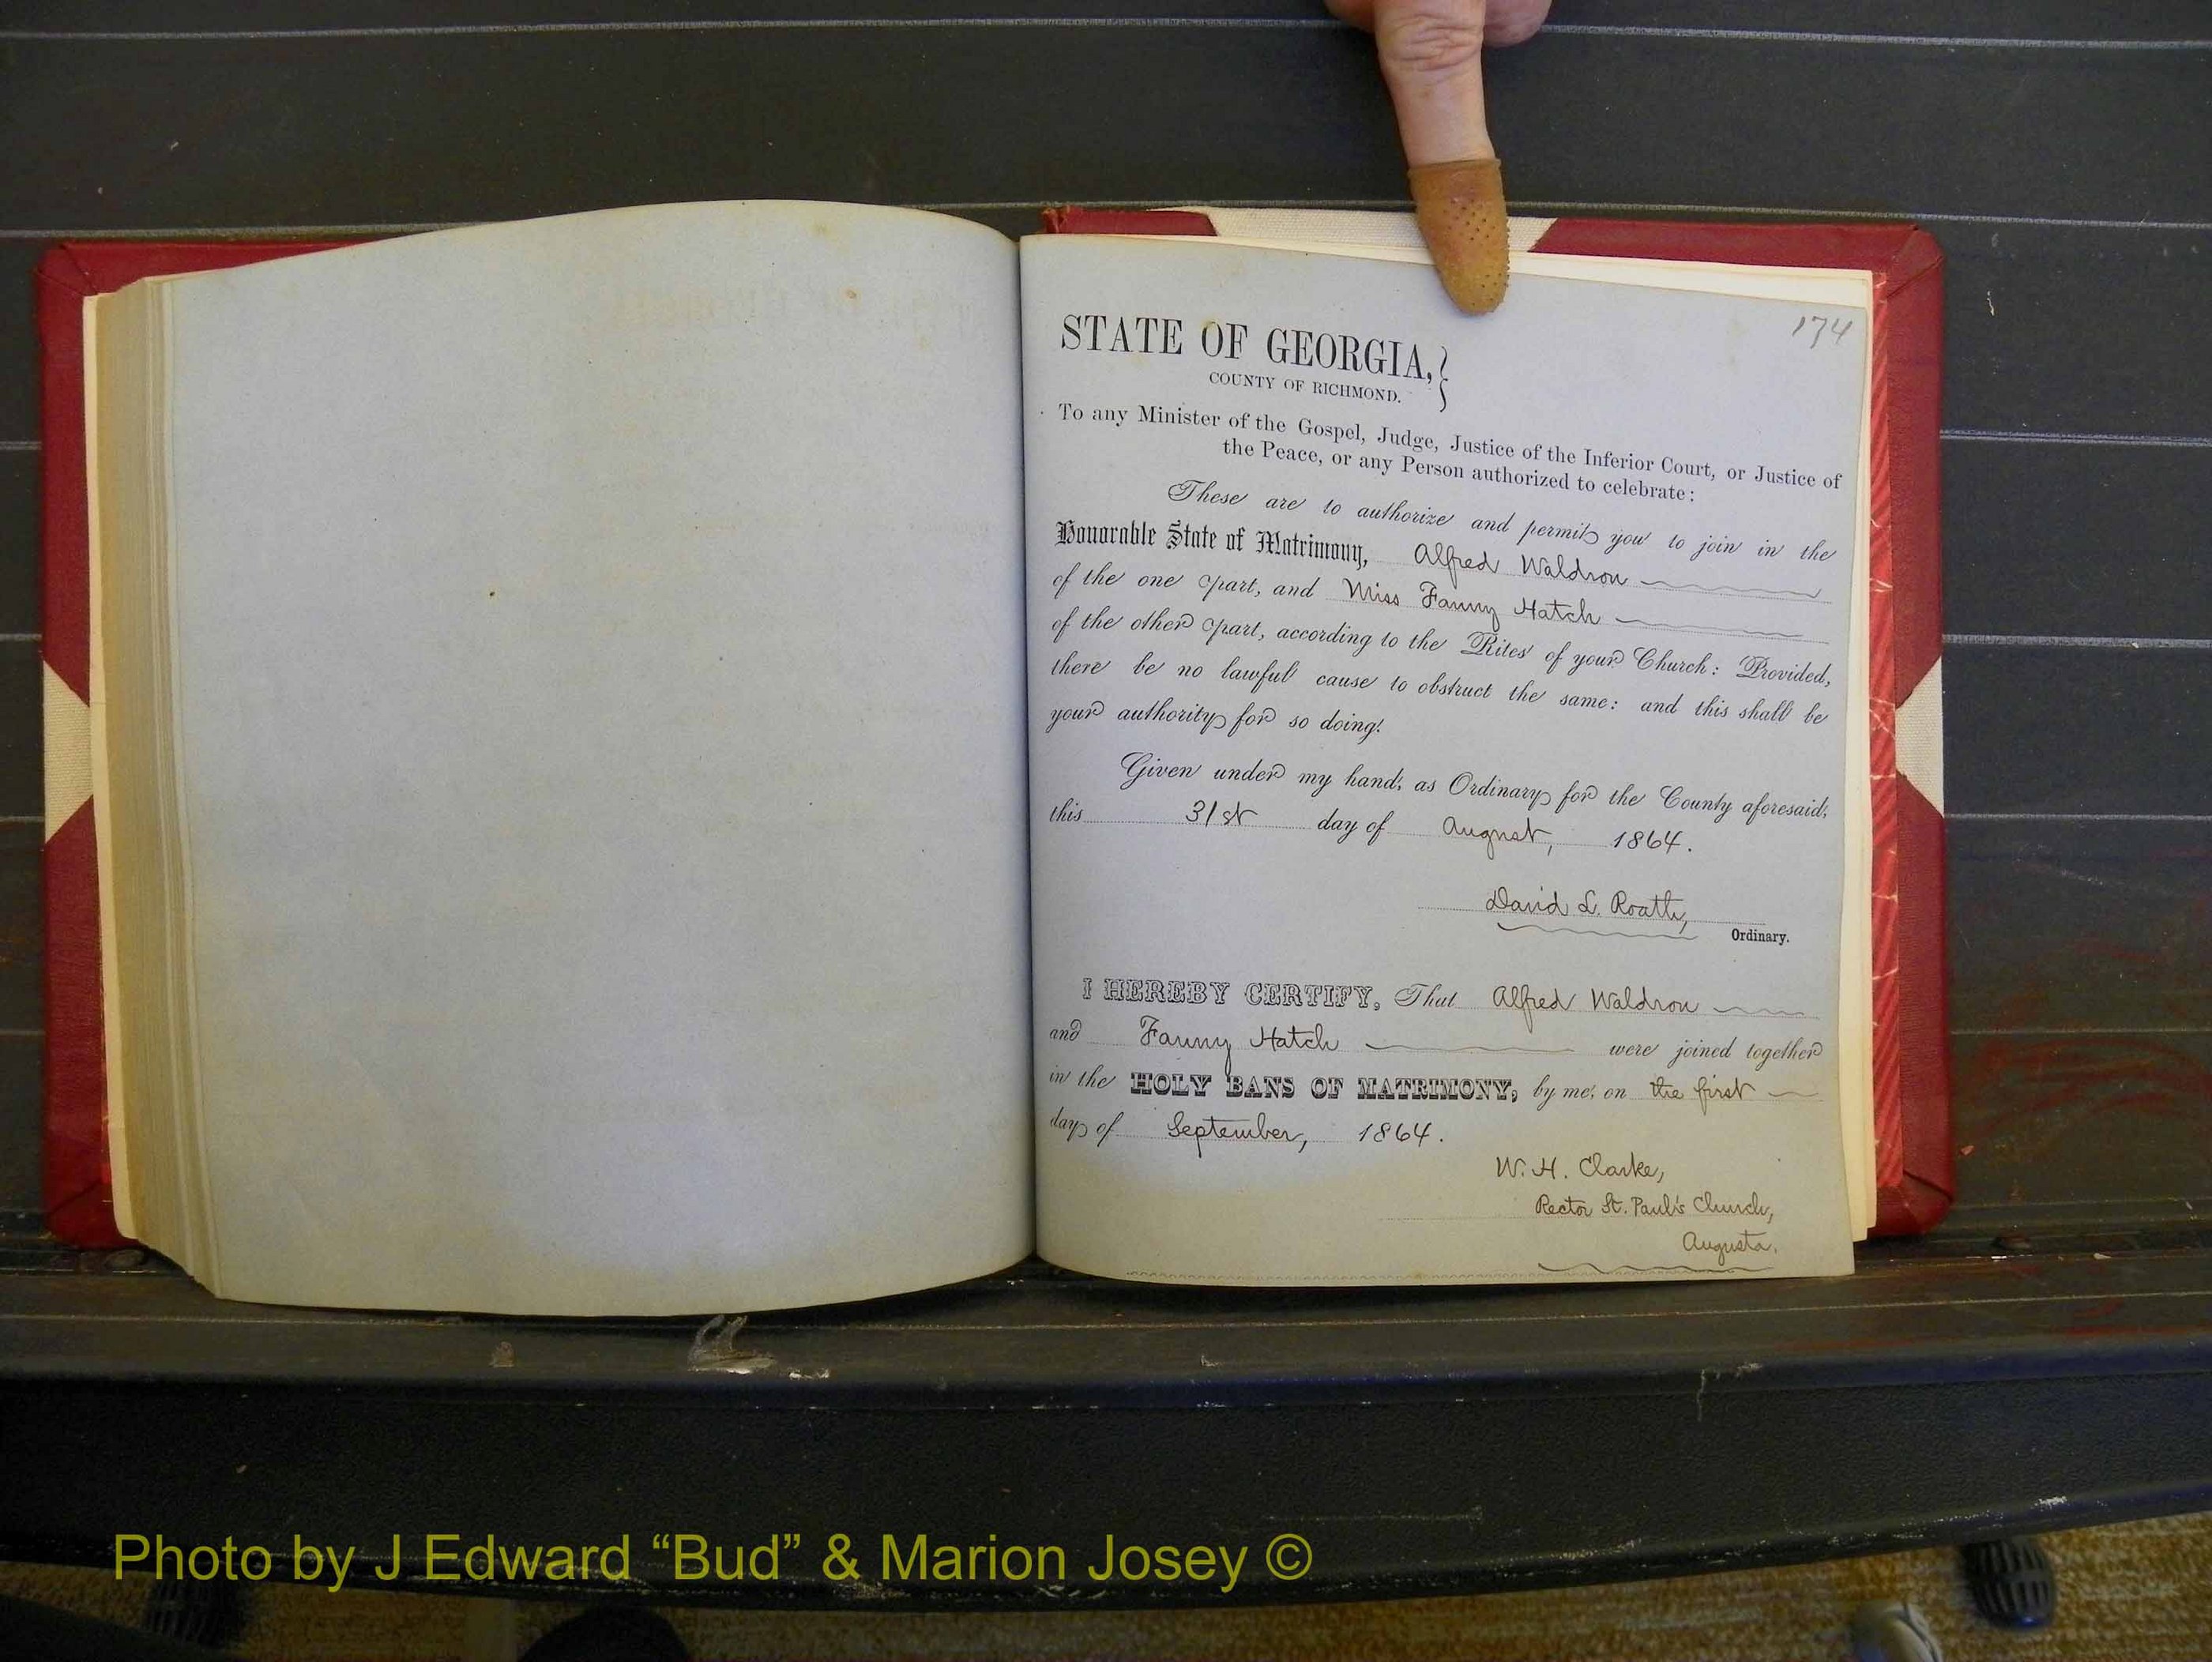 174
STATE OF GEORGIA,
COUNTY OF RICHMOND.
To any Minister of the Gospel, Judge, Justice of the Inferior Court, or Justice of
the Peace, or any Person authorized to celebrate:
These are to authorize and permit you to join in the
Honorable State of Matrimony, Alfred Waldron
of the one part, and Miss Fanny Hatch
of the other part, according to the Rites of your Church: Provided,
there be no lawful cause to obstruct the same: and this shall be
your authority for so doing.
Given under my hand, as Ordinary for the County aforesaid,
this 31st day of August, 1864.
David L. Roath,
Ordinary.
I HEREBY CERTIFY, That Alfred Waldron
and Fanny Hatch were joined together
in the HOLY BANS OF MATRIMONY, by me, on the first
day of September, 1864.
W. H. Clarke,
Rector St. Paul's Church,
Augusta.
Photo by J Edward “Bud” & Marion Josey ©